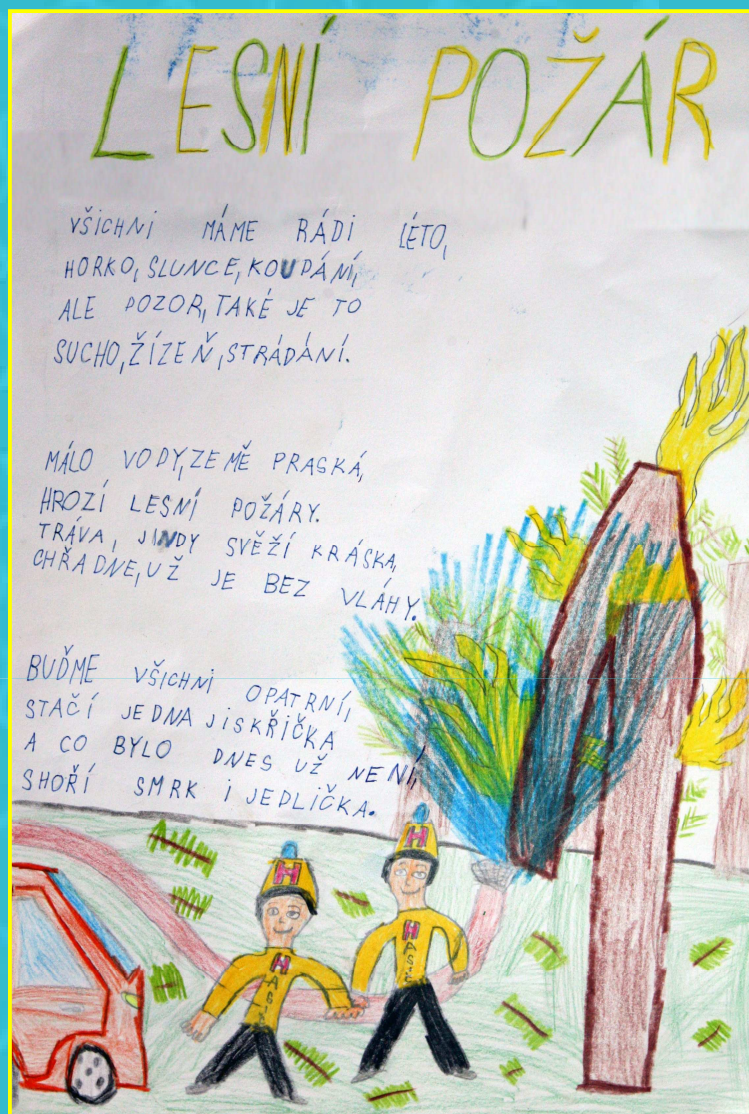 LESNÍ POŽÁR
VŠICHNI MÁME RÁDI LÉTO,
HORKO, SLUNCE, KOUPÁNÍ,
ALE POZOR, TAKÉ JE TO
SUCHO, ŽÍZEŇ, STRÁDÁNÍ.
MÁLO VODY, ZEMĚ PRASKÁ,
HROZÍ LESNÍ POŽÁRY.
TRÁVA, JINDY SVĚŽÍ KRÁSKA,
CHŘADNE, UŽ JE BEZ VLÁHY.
BUĎME VŠICHNI OPATRNÍ,
STAČÍ JEDNA JISKŘIČKA
A CO BYLO DNES UŽ NENÍ,
SHOŘÍ SMRK I JEDLIČKA.
H
H
H
HASIČ